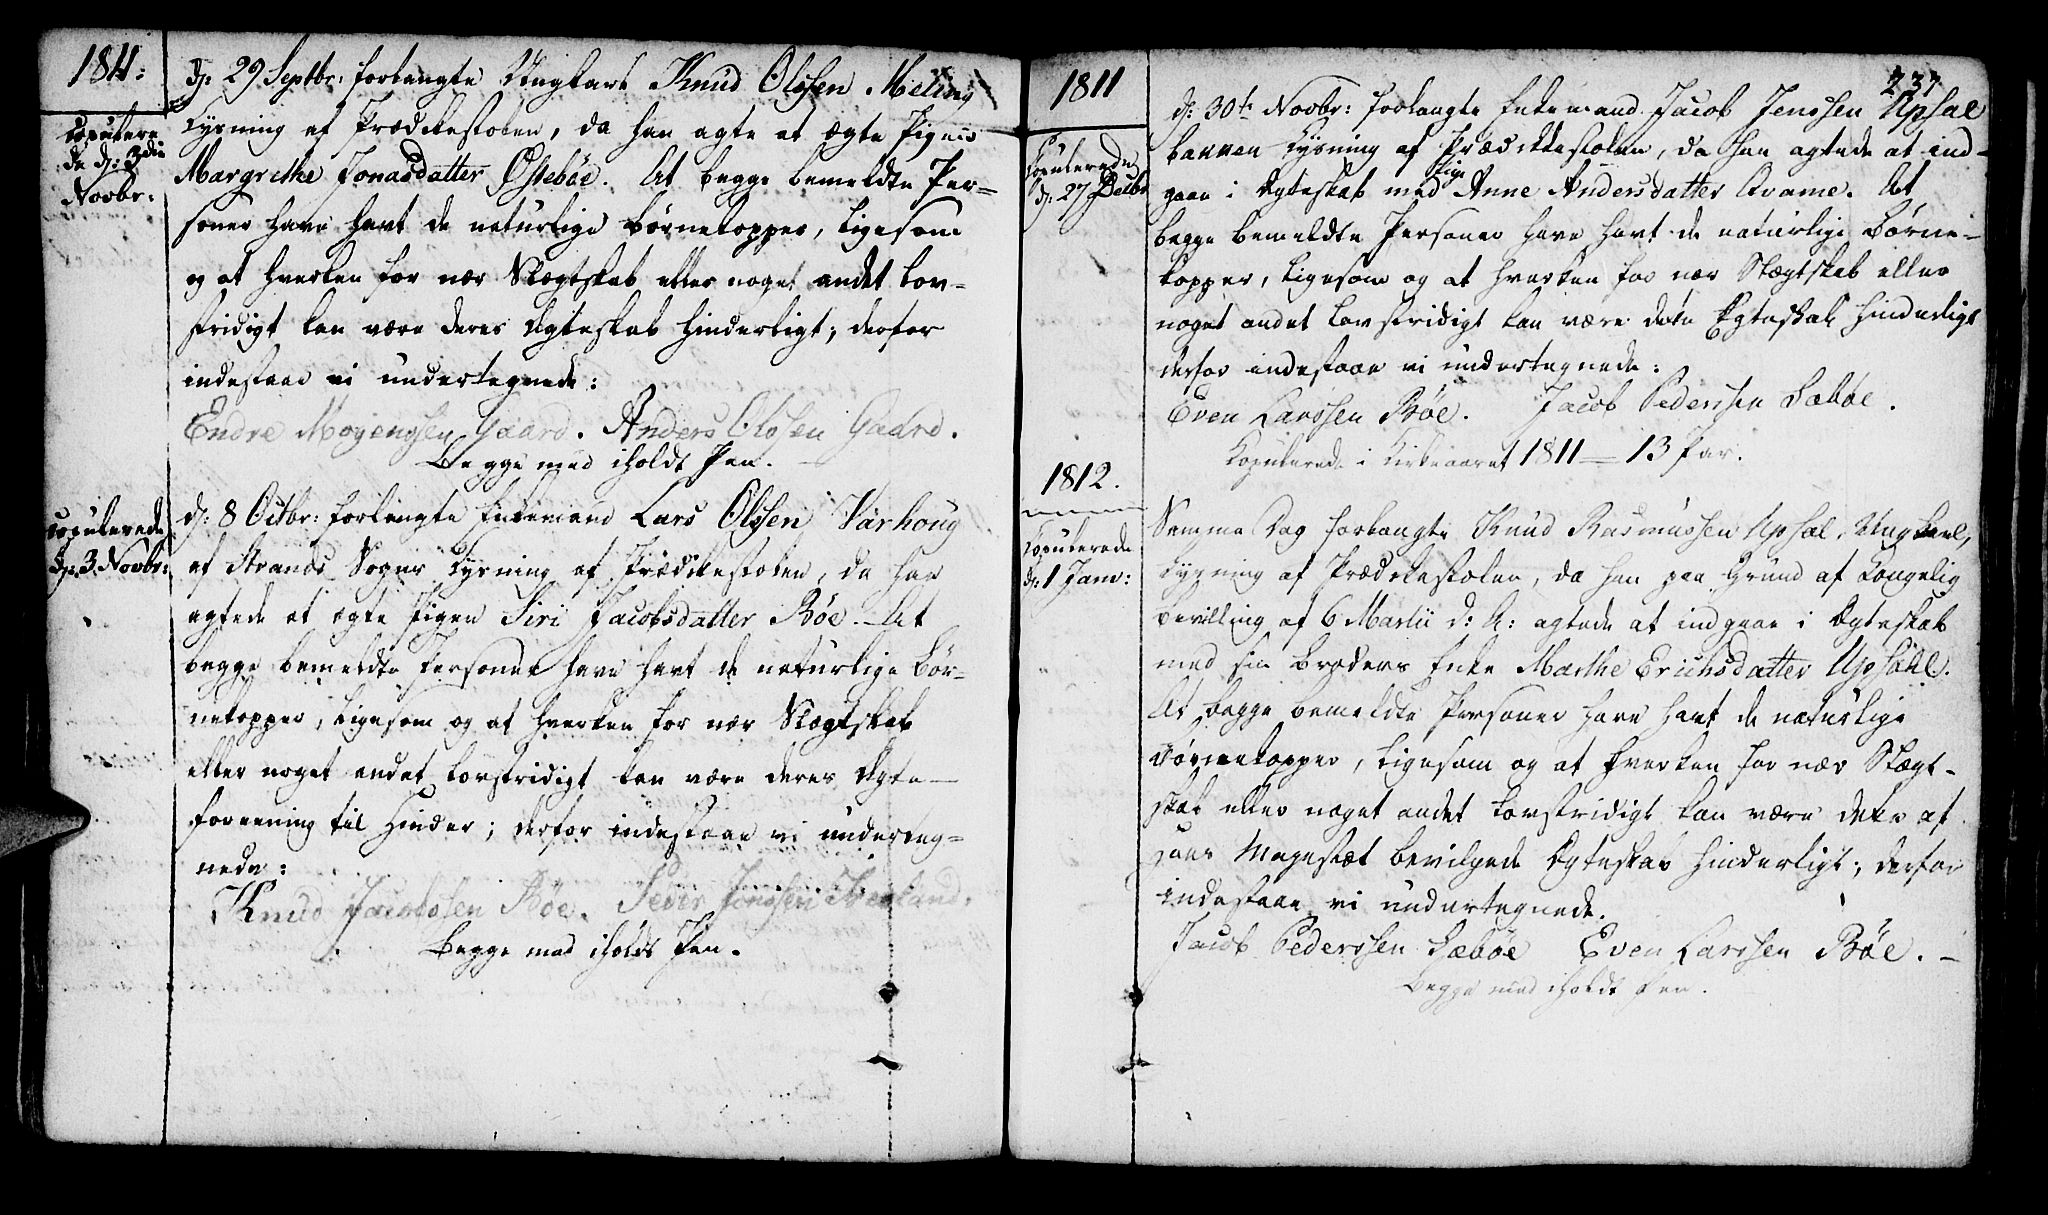 1811:
Copulere
de d: 3die
Novbr:
d: 29 Septbr: forlangte Ungkarl Knud Olssen Meling
Lysning af Prædikestolen, da han agte at ægte Pigen
Margrethe Jonasdatter Østebøe. At begge bemeldte Per-
soner have havt de naturlige Børnekopper, ligesom
og at hverken for nær Slægtskab eller noget andet lov-
stridigt kan være deres Ægteskab hinderligt; derfor
indestaae vi undertegnede:
Endre Mogenssen Gaard. Anders Olssen Gaard.
Begge med iholdt Pen.
Copulerede
d: 3 Novbr:
d: 8 Octbr: forlangte Enkemand Lars Olssen Varhoug
af Strands Sogn Lysning af Prædikestolen, da han
agtede at ægte Pigen Siri Jacobsdatter Bøe. At
begge bemeldte Personer have havt de naturlige Bør-
nekopper, ligesom og at hverken for nær Slægtskab
eller noget andet lovstridigt kan være deres Ægte-
forening til Hinder; derfor indestaae vi underteg-
nede:
Knud Jacobssen Bøe. Peder Jonssen
Begge med iholdt Pen.
1811
237
Copulerede
d: 27 Decbr
d: 30te Novbr: forlangte Enkemand Jacob Jenssen Upsal
Lysning af Prædikestolen, da han agtede at ind-
gaae i Ægteskab med Pige Anne Andersdatter Qvame. At
begge bemeldte Personer have havt de naturlige Børne-
kopper, ligesom og at hverken for nær Slægtskab eller
noget andet lovstridigt kan være dette Ægteskab hinderligt
derfor indestaae vi undertegnede:
Even Larssen Bøe. Jacob Pederssen Sæbøe.
Copulerede i Kirkeaaret 1811 = 13 Par.
1812.
Copulerede
d: 1 Janv:
Samme Dag forlangte Knud Rasmussen Upsal, Ungkarl,
Lysning af Prædikestolen, da han paa Grund af Kongelig
bevilling af 6 Martii d: A: agtede at indgaae i Ægteskab
med sin Broders Enke Marthe Erichsdatter Upsahl.
At begge bemeldte Personer have havt de naturlige
Børnekopper, ligesom og at hverken for nær Slægt-
skab eller noget andet lovstridigt kan være dette af
Hans Majestæt bevilgede Ægteskab hinderligt; derfor
indestaae vi undertegnede.
Jacob Pederssen Sæbøe Even Larssen Bøe. -
Begge med iholdt Pen.